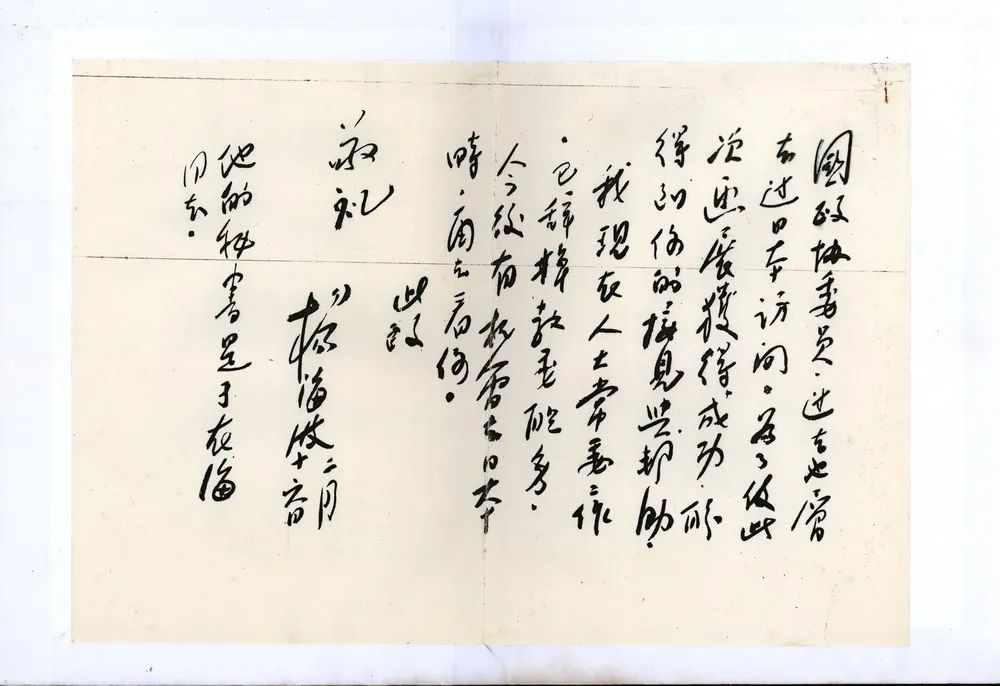 国政协委员，过去也曾
去过日本访问。为了使此
次画展获得成功，盼
得到你的接见与帮助。
我现在人大常委工作
，已辞掉教委职务。
今后有机会去日本
时，再去看你。
此致
敬礼
杨海波
二月
十六日
他的秘书是于在海
同志。